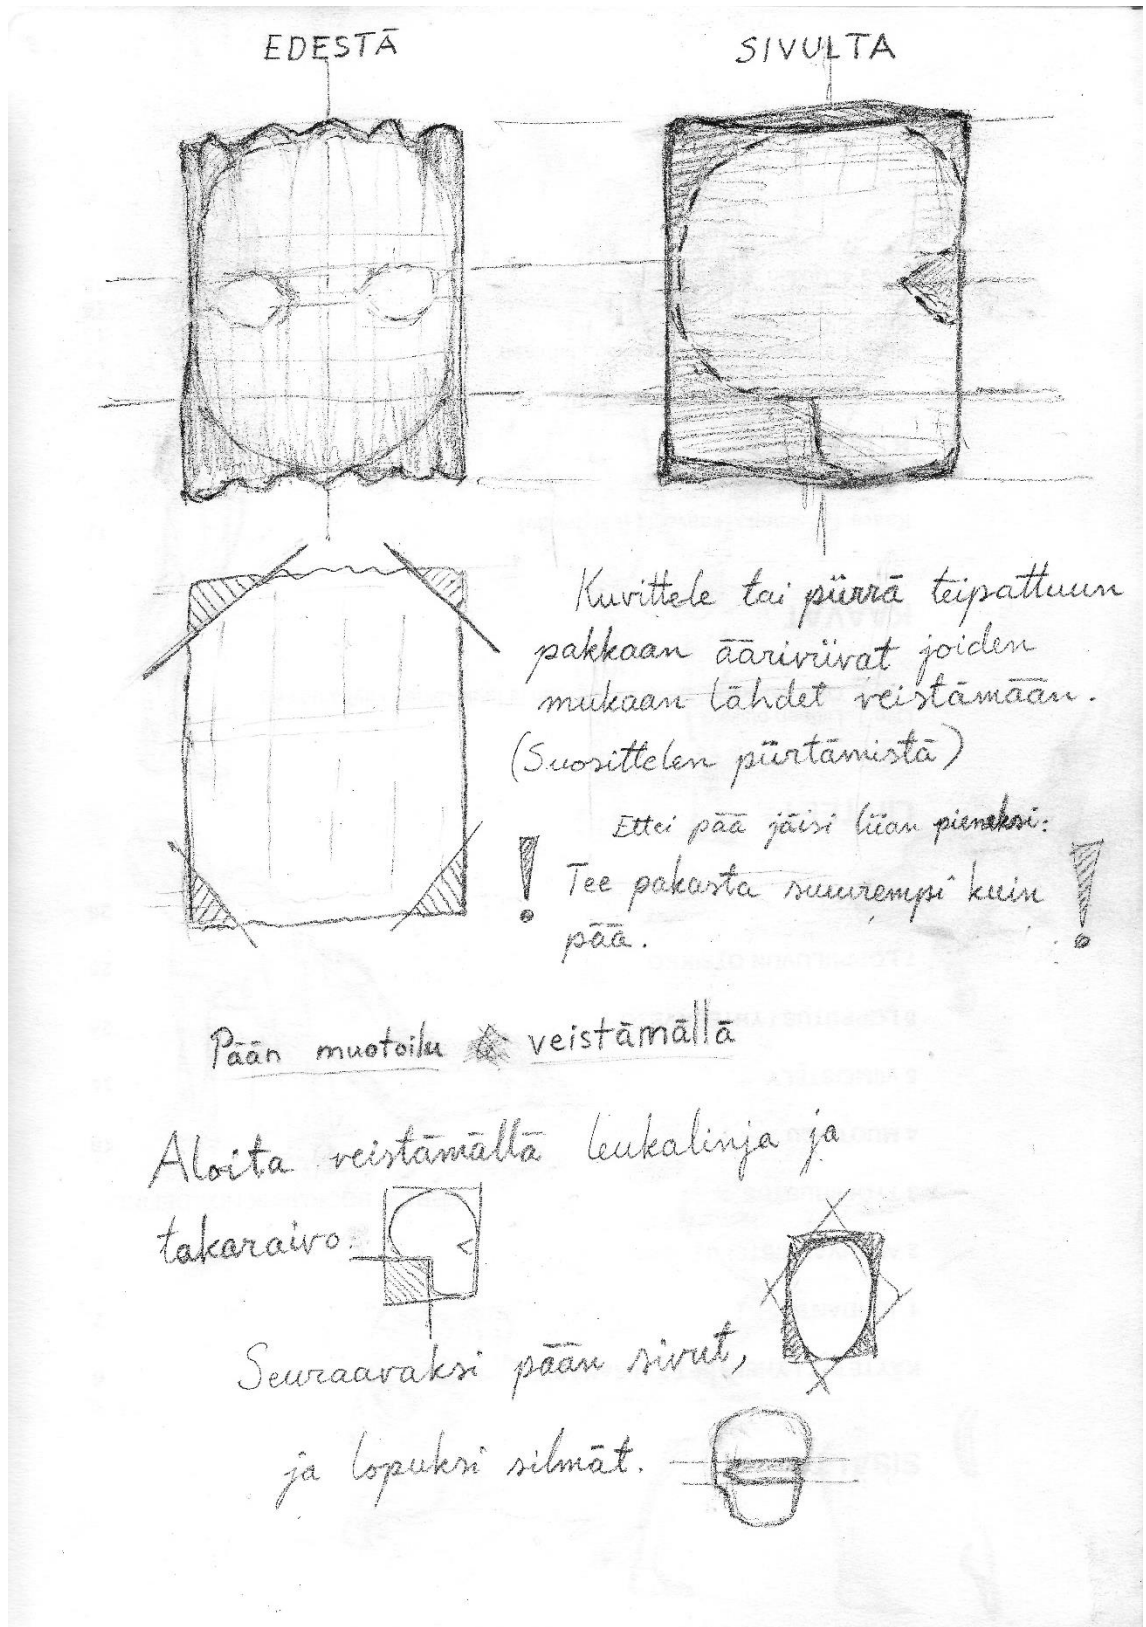 EDESTÄ
SIVULTA
Kuvittele tai piirrä teipattuun
pakkaan ääriviivat joiden
mukaan lähdet veistämään.
(Suosittelen piirtämistä)
Ettei pää jäisi liian pieneksi:
! Tee pakasta suurempi kuin !
pää.
Pään muotoilu veistämällä
Aloita veistämällä leukalinja ja
takaraivo.
Seuraavaksi pään sivut,
ja lopuksi silmät.